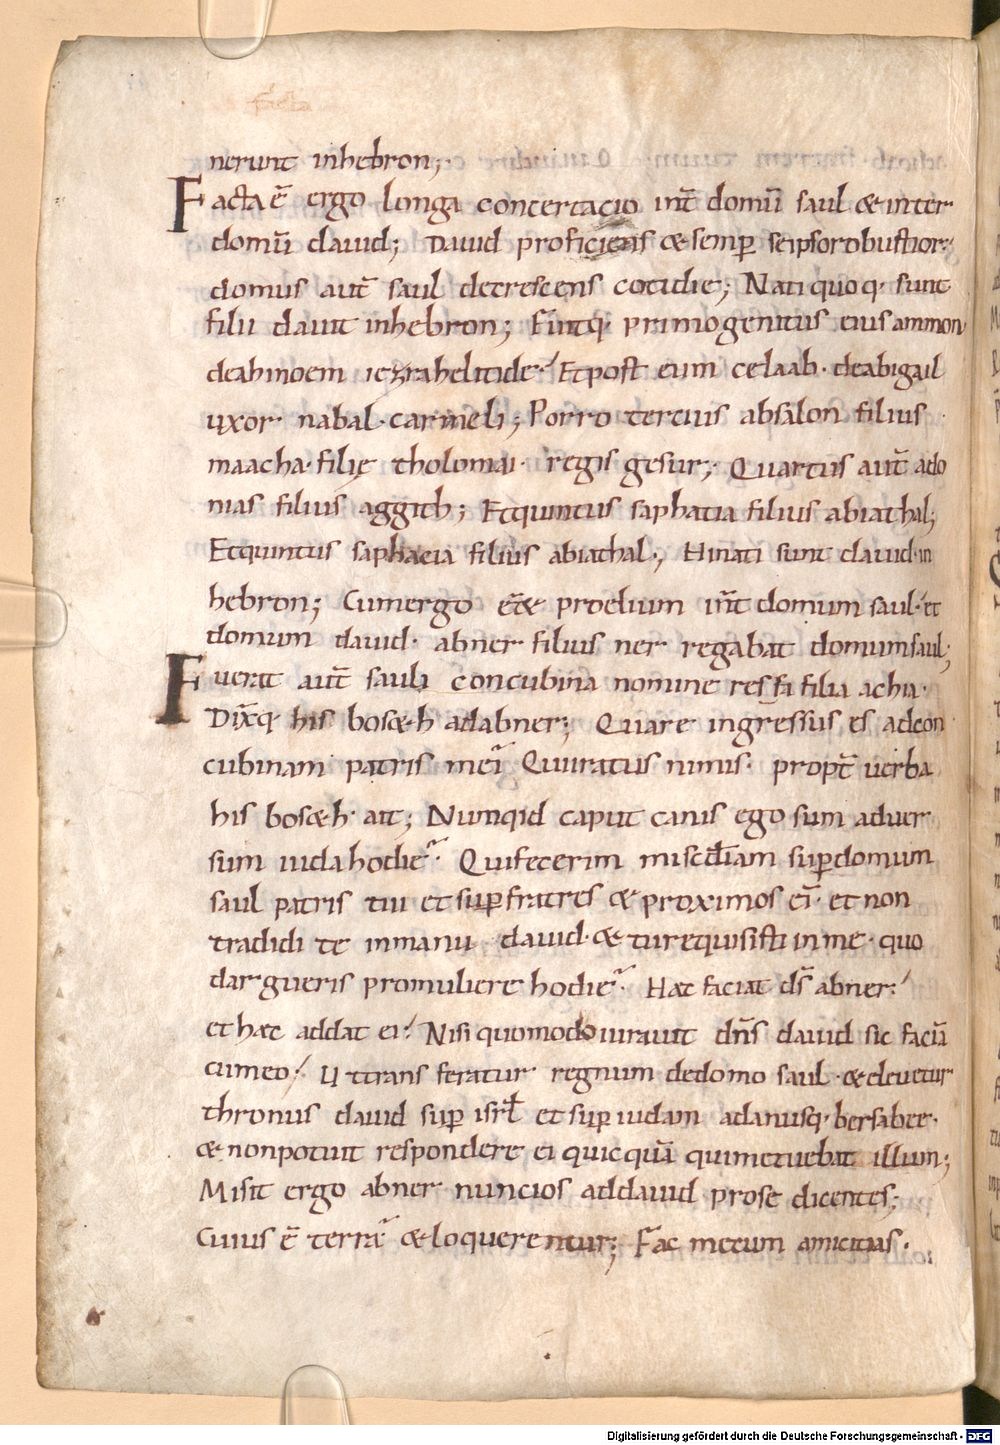 facta
nerunt inhebron;
Facta ē ergo longa concertacio int̄ domū saul & inter
domū dauid; Dauid proficiens & semp̲ seipsorobustior
domus aut̄ saul decrescens cotidie; Nati quoq· sunt
filii dauit inhebron; Fuitq· primogenitus eius ammon
deahinoem iezrahelitide· Etpost eum celaab· deabigail
uxor nabal· carmeli; Porro tercius absalon filius
maacha· filię tholomai· regis gesur; Quartus aut̄ ado
nias filius aggith; Etquintus saphatia filius abiathal;
Etquintus saphacia filius abiathal; Hinati sunt dauid· in
hebron; Cumergo ēe& proelium int̄ domum saul· et
domum dauid· abner filius ner regabat domumsaul;
Fuerat aut̄ sauli concubina nomine resfa filia achia·
Dix̄q· his bos&h adabner; Quare ingressus es adcon
cubinam patris mei Quiiratus nimis· propt̄ uerba
his bos&h· ait; Numqid caput canis ego sum aduer
sum iuda hodie· Quifecerim misc̄diam sup̲domum
saul patris tui et sup̲ fratres & proximos ei̅· et non
tradidi te inmanu dauid· & turequisisti in me· quo
dargueris promuliere hodie· Hæc faciat ds̄ abner·
et hæc addat ei· Nisi quomodo iurauit dn̄s dauid sic faciā
cumeo· Uttrans feratur regnum dedomo saul· & eleuetur
thronus dauid sup̲ isrl̄ et sup̲ iudam adanusq· bersabee·
& nonpotuit respondere ei quicquā quimetuebat illum;
Misit ergo abner nuncios addauid prose dicentes;
Cuius ē terra & loquerentur; Fac mecum amicitias·
Digitalisierung gefördert durch die Deutsche Forschungsgemeinschaft - DFG